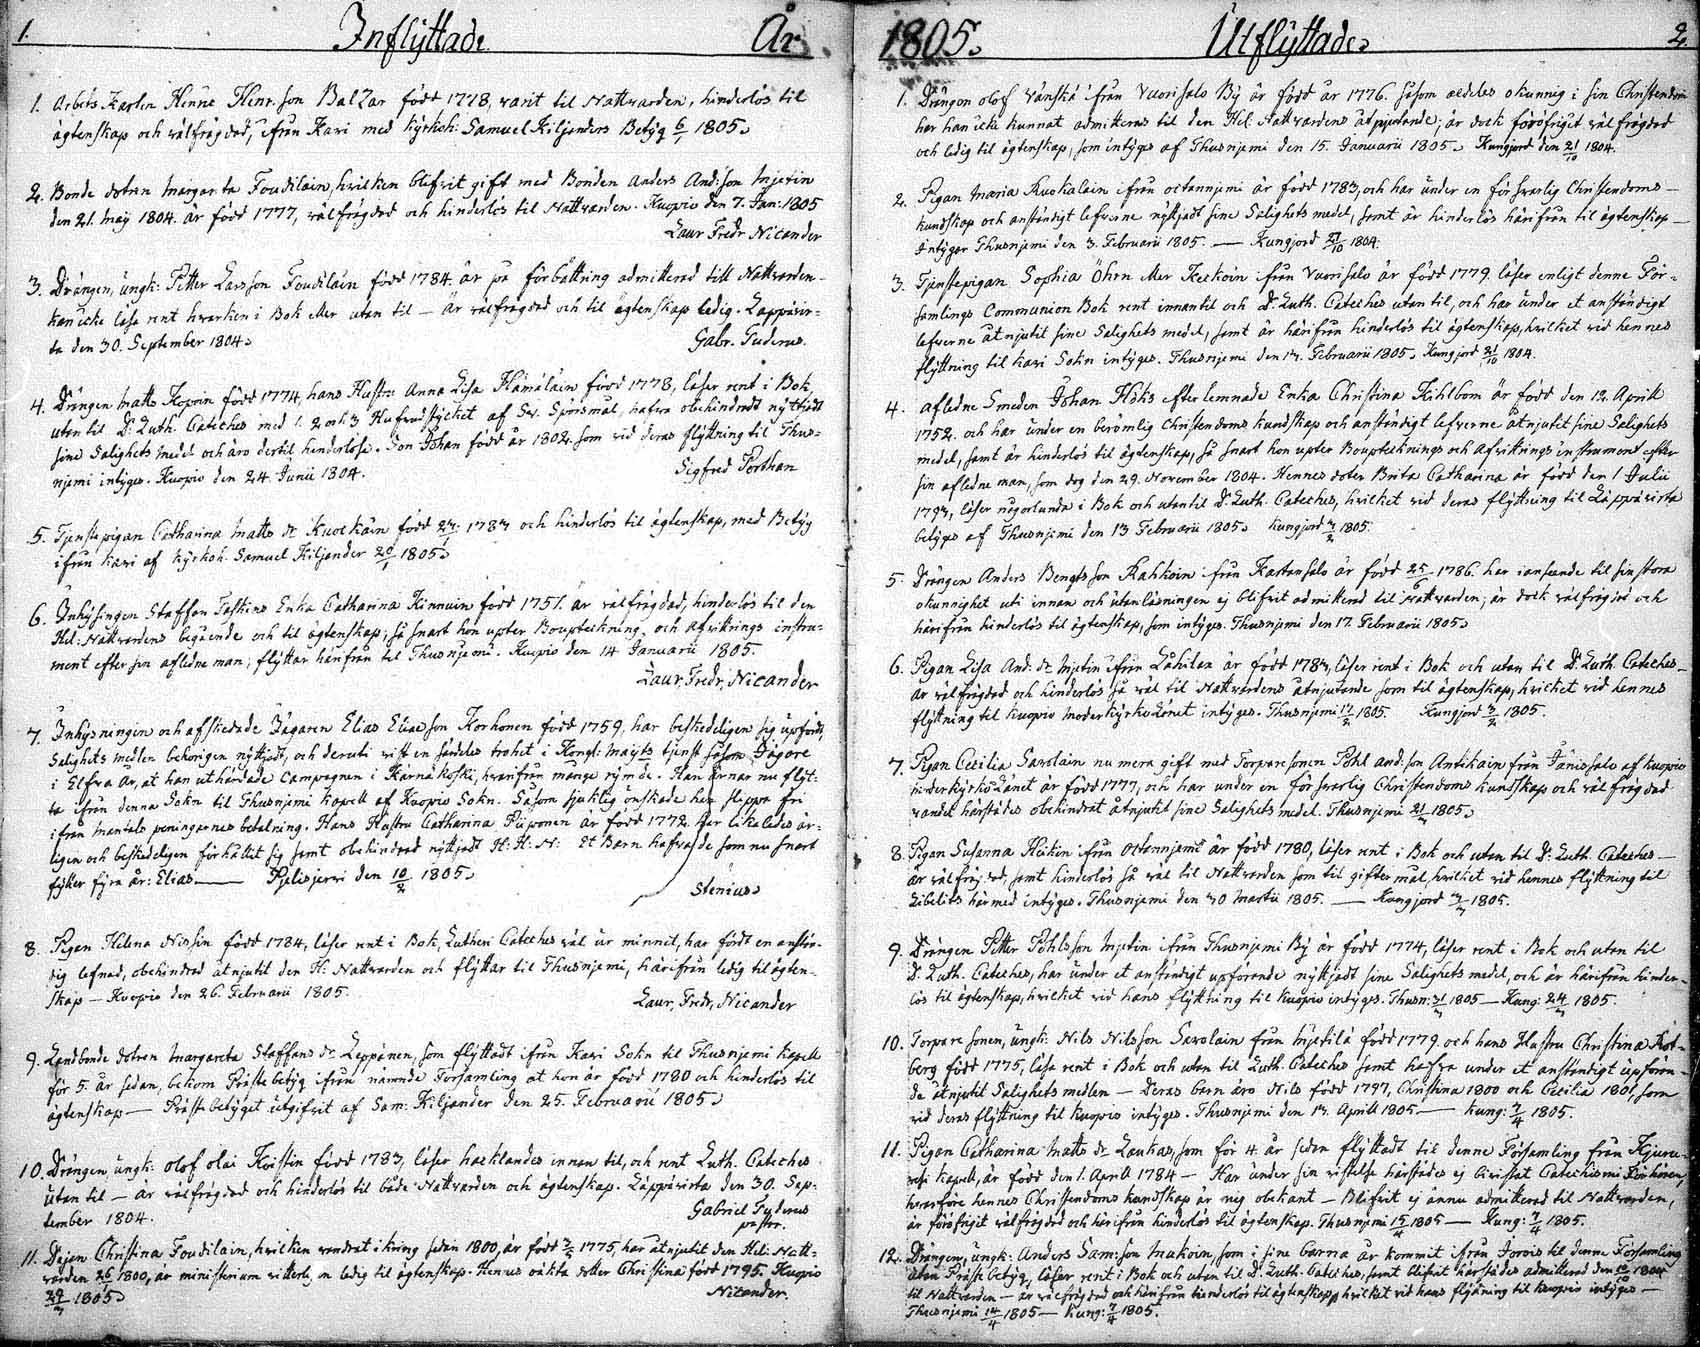 1. Inflyttade År
1. Arbets Karlen Henric Henr. son Balzar född 1778, varit til Nattvarden, hinderlös til
ägtenskap och välfrägdad, ifrån Kavi med Kyrkoh: Samuel Kiljanders Betyg 6/1 1805.
2. Bonde dotren Margar:ta Toudilain, hvilken blifvit gift med Bonden Anders And:son Mjetin
den 21. Maij 1804. är född 1777, välfrägdad och hinderlös til Nattvarden. Kuopio den 7. Jan: 1805
Laur Fredr Nicander
3. Drängen, ungk: Petter Larsson Toudilain född 1784. är på förbättring admitterad till Nattvarden
kan icke läsa rent hvarken i Bok eller utan til — Är välfrägdad och til ägtenskap ledig. Lappävir-
ta den 30. September 1804.
Gabr. Tuderus.
4. Drängen Matts Koponin född 1774, hans Hustru Anna Lisa Hämäläin född 1778, läser rent i Bok
utan til D: Luth. Cateches med 1. 2 och 3 Hufvudstycket af Sv. Spörsmål, hafva obehindradt nyttjadt
sine Salighets medel och äro dertil hinderlöse. Son Johan född år 1802. som vid deras flyttning til Thus-
njemi intyges. Kuopio den 24 Junii 1804.
Sigfred Porthan
5. Tjenstepigan Catharina Matts dr Kuockain född 1787 och hinderlös til ägtenskap, med Betyg
ifrån Kavi af Kyrkoh. Samuel Kiljander 20/1 1805.
6. Inhysingen Staffan Taskins Enka Catharina Kinnuin född 1751. är välfrägdad, hinderlös til den
Hel: Nattvardens begående och til ägtenskap, så snart hon upter Bouptekning och afvittrings instru-
ment efter sin afledne man; flyttar härifrån til Thusnjemi. Kuopio den 14 Januarii 1805.
Laur, Fredr, Nicander
7. Inhysningin och afskedade Jägaren Elias Eliæ son Korhonen född 1759, har beskedeligen sig upfördt,
Salighets medlen behörigen nyttjadt, och deruti vist en särdeles trohet i Kongl: Maijts tjenst såsom Jägare
i Elfva år, at han uthärdade Campagnen i Kärnäkoski, hvarifrån månge rymde. Han ärnar nu flyt-
ta ifrån denna Sokn til Thusnjemi Kapell af Kuopio Sokn. Såsom sjuklig önskade han slippa fri
ifrån Mantals peningarnes betalning. Hans Hustru Catharina Piiponen är född 1772. har likaledes är-
ligen och beskedeligen förhållit sig samt obehindrad nyttjadt H: H: N: Et Barn hafva de som nu snart
fyller fyra år: Elias — Pielisjervi den 10/2 1805.
Stenius
8. Pigan Helena Nissin född 1784, läser rent i Bok, Lutheri Cateches väl ur minnet, har fördt en anstän-
dig lefnad, obehindrad åtnjutit den H: Nattvarden och flyttar til Thusnjemi, härifrån ledig til ägten-
skap — Kuopio den 26. Februarii 1805.
Laur, Fredr, Nicander
9. Landbonde dotren Margareta Staffans dr Leppänen, som flyttadt ifrån Kavi Sokn til Thusnjemi Kapell
för 5. år sedan, bekom Prästebetyg ifrån nämnde Församling at hon är född 1780 och hinderlös til
ägtenskap — Prästebetyget utgifvit af Sam: Kiljander den 25. Februarii 1805.
10. Drängen ungk: Olof Olai Koistin född 1783, läser hacklandes innan til, och rent Luth. Cateches
utan til — är välfrägdad och hinderlös til både Nattvarden och ägtenskap. Läppävirta den 30. Sep-
tember 1804.
Gabriel Tuderus
pastor.
11. Dejan Christina Toudilain, hvilken vandrat ikring sedan 1800, är född 1775, har åtnjutit den Hel: Natt-
varden 1800, är ledig til ägtenskap. Hennes oäkta dotter Christina född 1795. Kuopio
1805.
Nicander.
1805. Utflyttade. 2
1. Drängen Olof Vänskä ifrån Vuorisalo By är född år 1776. Såsom aldeles okunnig i sin Christendom
har han icke kunnat admitteras til den Hel. Nattvardens åtnjutande; är dock föröfrigit välfrägdad
och ledig til ägtenskap, som intyges af Thusnjemi den 15. Januarii 1805. Kungjord den 21/10 1804.
2. Pigan Maria Ruokalain ifrån Oitannjemi är född 1783, och har under en försvarlig Christendoms
kundskap och anständigt lefverne nyttjadt sine Salighets medel, samt är hinderlös härifrån til ägtenskap
Intygar Thusnjemi den 3. Februarii 1805. — Kungjord 1804.
3. Tjenstepigan Sophia Öhrn eller Keckoin ifrån Vuorisalo är född 1779. läser enligt denne För-
samlings Communion Bok rent innantil och D: Luth. Cateches utan til, och har under et anständigt
lefverne åtnjutit sine Salighets medel, samt är härifrån hinderlös til ägtenskap, hvilket vid hennes
flyttning til Kavi Sokn intyges. Thusnjemi den Februarii 1805. Kungjord 21/10 1804.
4. Afledne Smeden Johan Höks efterlemnade Enka Christina Kihlbom är född den 12. Aprill
1752. och har under en berömlig Christendoms kundskap och anständigt lefverne åtnjutit sine Salighets
medel, samt är hinderlös til ägtenskap, så snart hon upter Bouptecknings och Afvittrings instrument efter
sin afledne man, som dog den 29. November 1804. Hennes doter Brita Catharina är född den 1 Julii
läser någorlunda i Bok och utantil D: Luth. Cateches, hvilket vid deras flyttning til Läppävirta
betyges af Thusnjemi den 13 Februarii 1805. Kungjord 1805.
5. Drängen Anders Bengtsson Rahkoin ifrån Kartansalo är född 25/6 1786. har i anseende til sin stora
okunnighet uti innan och utanläsningen ej blifvit admitterad til Nattvarden; är dock välfrägdad och
härifrån hinderlös til ägtenskap, som intyges. Thusnjemi den 17. Februarii 1805.
6. Pigan Lisa And: dr Mjetin ifrån är född 1787, läser rent i Bok och utan til D: Luth. Cateches
är välfrägdad och hinderlös så väl til Nattvardens åtnjutande som til ägtenskap, hvilket vid hennes
flyttning til Kuopio Moderkyrko Länet intyges. Thusnjemi 17/2 1805. Kungjord 3/2 1805.
7. Pigan Cecilia Savolain nu mera gift med Torparesonen Påhl And:son Antikain från Jänissalo af Kuopio
Moderkyrko Länet är född 1777, och har under en försvarlig Christendoms kundskap och välfrägdad
vandel härstädes obehindrat åtnjutit sine Salighets medel. Thusnjemi 1805.
8. Pigan Susanna Heikin ifrån Oitannjemi är född 1780, läser rent i Bok och utan til D: Luth. Cateches —
är välfrägdad, samt hinderlös så väl til Nattvarden som til giftermål, hvilket vid hennes flyttning til
Libelits härmed intyges. Thusnjemi den 30 Martii 1805. — Kungjord 1805.
9. Drängen Petter Påhlsson Mjetin ifrån Thusnjemi By är född 1774, läser rent i Bok och utan til
D: Luth. Cateches, har under et anständigt upförande nyttjadt sine Salighets medel, och är härifrån hinder-
lös til ägtenskap, hvilket vid hans flyttning til Kuopio intyges. Thusn: 31/3 1805 — Kung: 24/3 1805.
10. Torpare Sonen, ungk: Nils Nilsson Savolain från Mjetilä född 1779. och hans Hustru Christina Röt-
berg född 1775, läsa rent i Bok och utan til Luth. Cateches samt hafva under et anständigt upföran-
de åtnjutit Salighets medlen — Deras barn äro Nils född 1797, Christina 1800 och Cecilia 1801, som
vid deras flyttning til Kuopio intyges. Thusnjemi den Aprill 1805 — Kung: 7/4 1805.
11. Pigan Catharina Matts dr Laukas, som för 4. år sedan flyttadt til denne Församling från Kjuru-
vesi Kapell, är född den 1. Aprill 1784 — Har under sin vistelse härstädes ej bivistat Catechismi Förhören,
hvarföre hennes Christendoms kundskap är mig obekant — Blifvit ej ännu admitterad til Nattvarden,
är föröfrigit välfrägdad och härifrån hinderlös til ägtenskap. Thusnjemi 15/4 1805 — Kung: 7/4 1805.
12. Drängen, ungk: Anders Sam:son Makoin, som i sine barna år kommit ifrån Jorois til denne Församling
utan Prästebetyg, läser rent i Bok och utan til D: Luth. Cateches, samt blifvit härstädes admitterad den 1804
til Nattvarden — är välfrägdad och härifrån hinderlös til ägtenskap, hvilket vid hans flyttning til Kuopio intyges —
Thusnjemi 14/4 1805 — Kung: 7/4 1805.